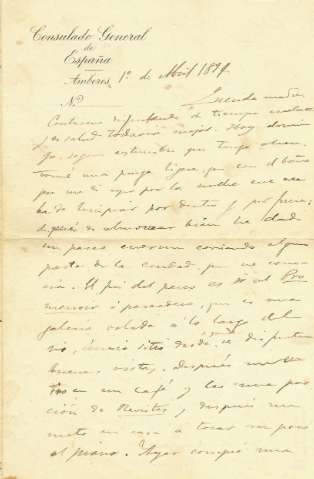 Consulado General
de
España
Amberes, 1º de Abril 1894.
Nº
Querida madre:
Continuo disfrutando de tiempo
y de salud Hoy domin
go, segun costumbre que tengo
tomé una purga ligera, que con el baño
que me di ayer por la noche me aca
ba de limpiar por dentro y por fuera;
despues de almorzar bien he dado
un paseo enorme corriendo alguna
parte de la ciudad, que no cono
cia. El fin del paseo es en el Pro
menoir ó paseadero, que es una
galeria volada á lo largo del
rio, único sitio desde el que se disfrutan
buenas vistas, despues me
en un café y lei una por
ción de Revistas y despues me
meto en casa á tocar un poco
el piano. Ayer compré una